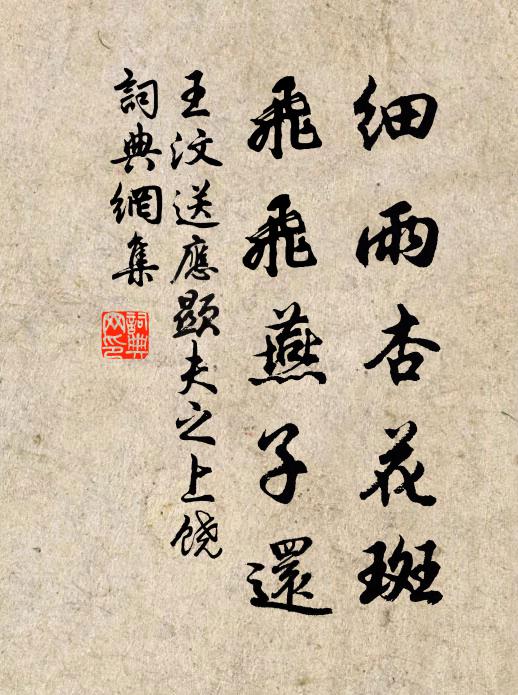 細雨杏花斑
飛飛燕子還
王汶送應顯夫之上饒
詞典網集
詞典网印